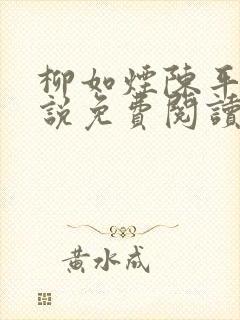 柳如煙陳平
說免費閱讀
黃水成